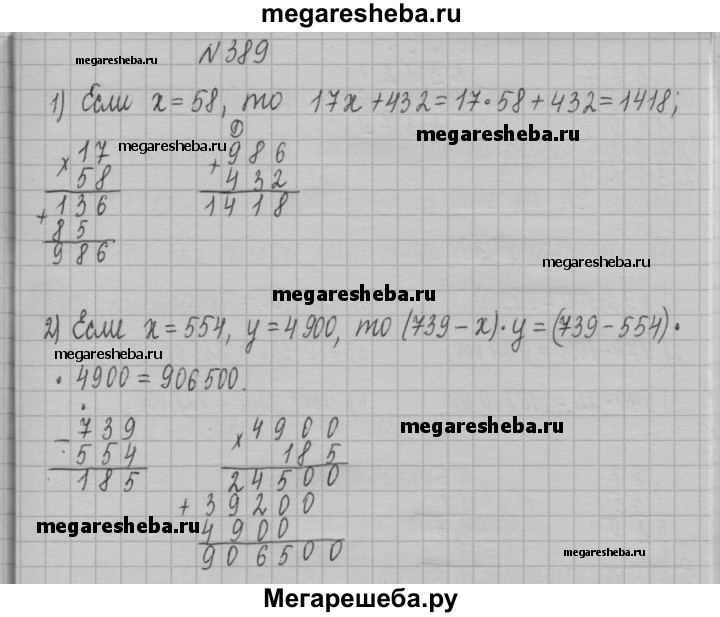 megaresheba.ru
megaresheba.ru
№389
1) Если x = 58, то 17x + 432 = 17 · 58 + 432 = 1418;
megaresheba.ru
megaresheba.ru
× 17
58
+ 136
85
986
1
+ 986
432
1418
megaresheba.ru
megaresheba.ru
2) Если x = 554, y = 4900, то (739 − x) · y = (739 − 554) ·
megaresheba.ru
· 4900 = 906500.
− 739
554
185
× 4900
185
24500
+ 39200
4900
906500
megaresheba.ru
megaresheba.ru
megaresheba.ru
Мегарешеба.ру